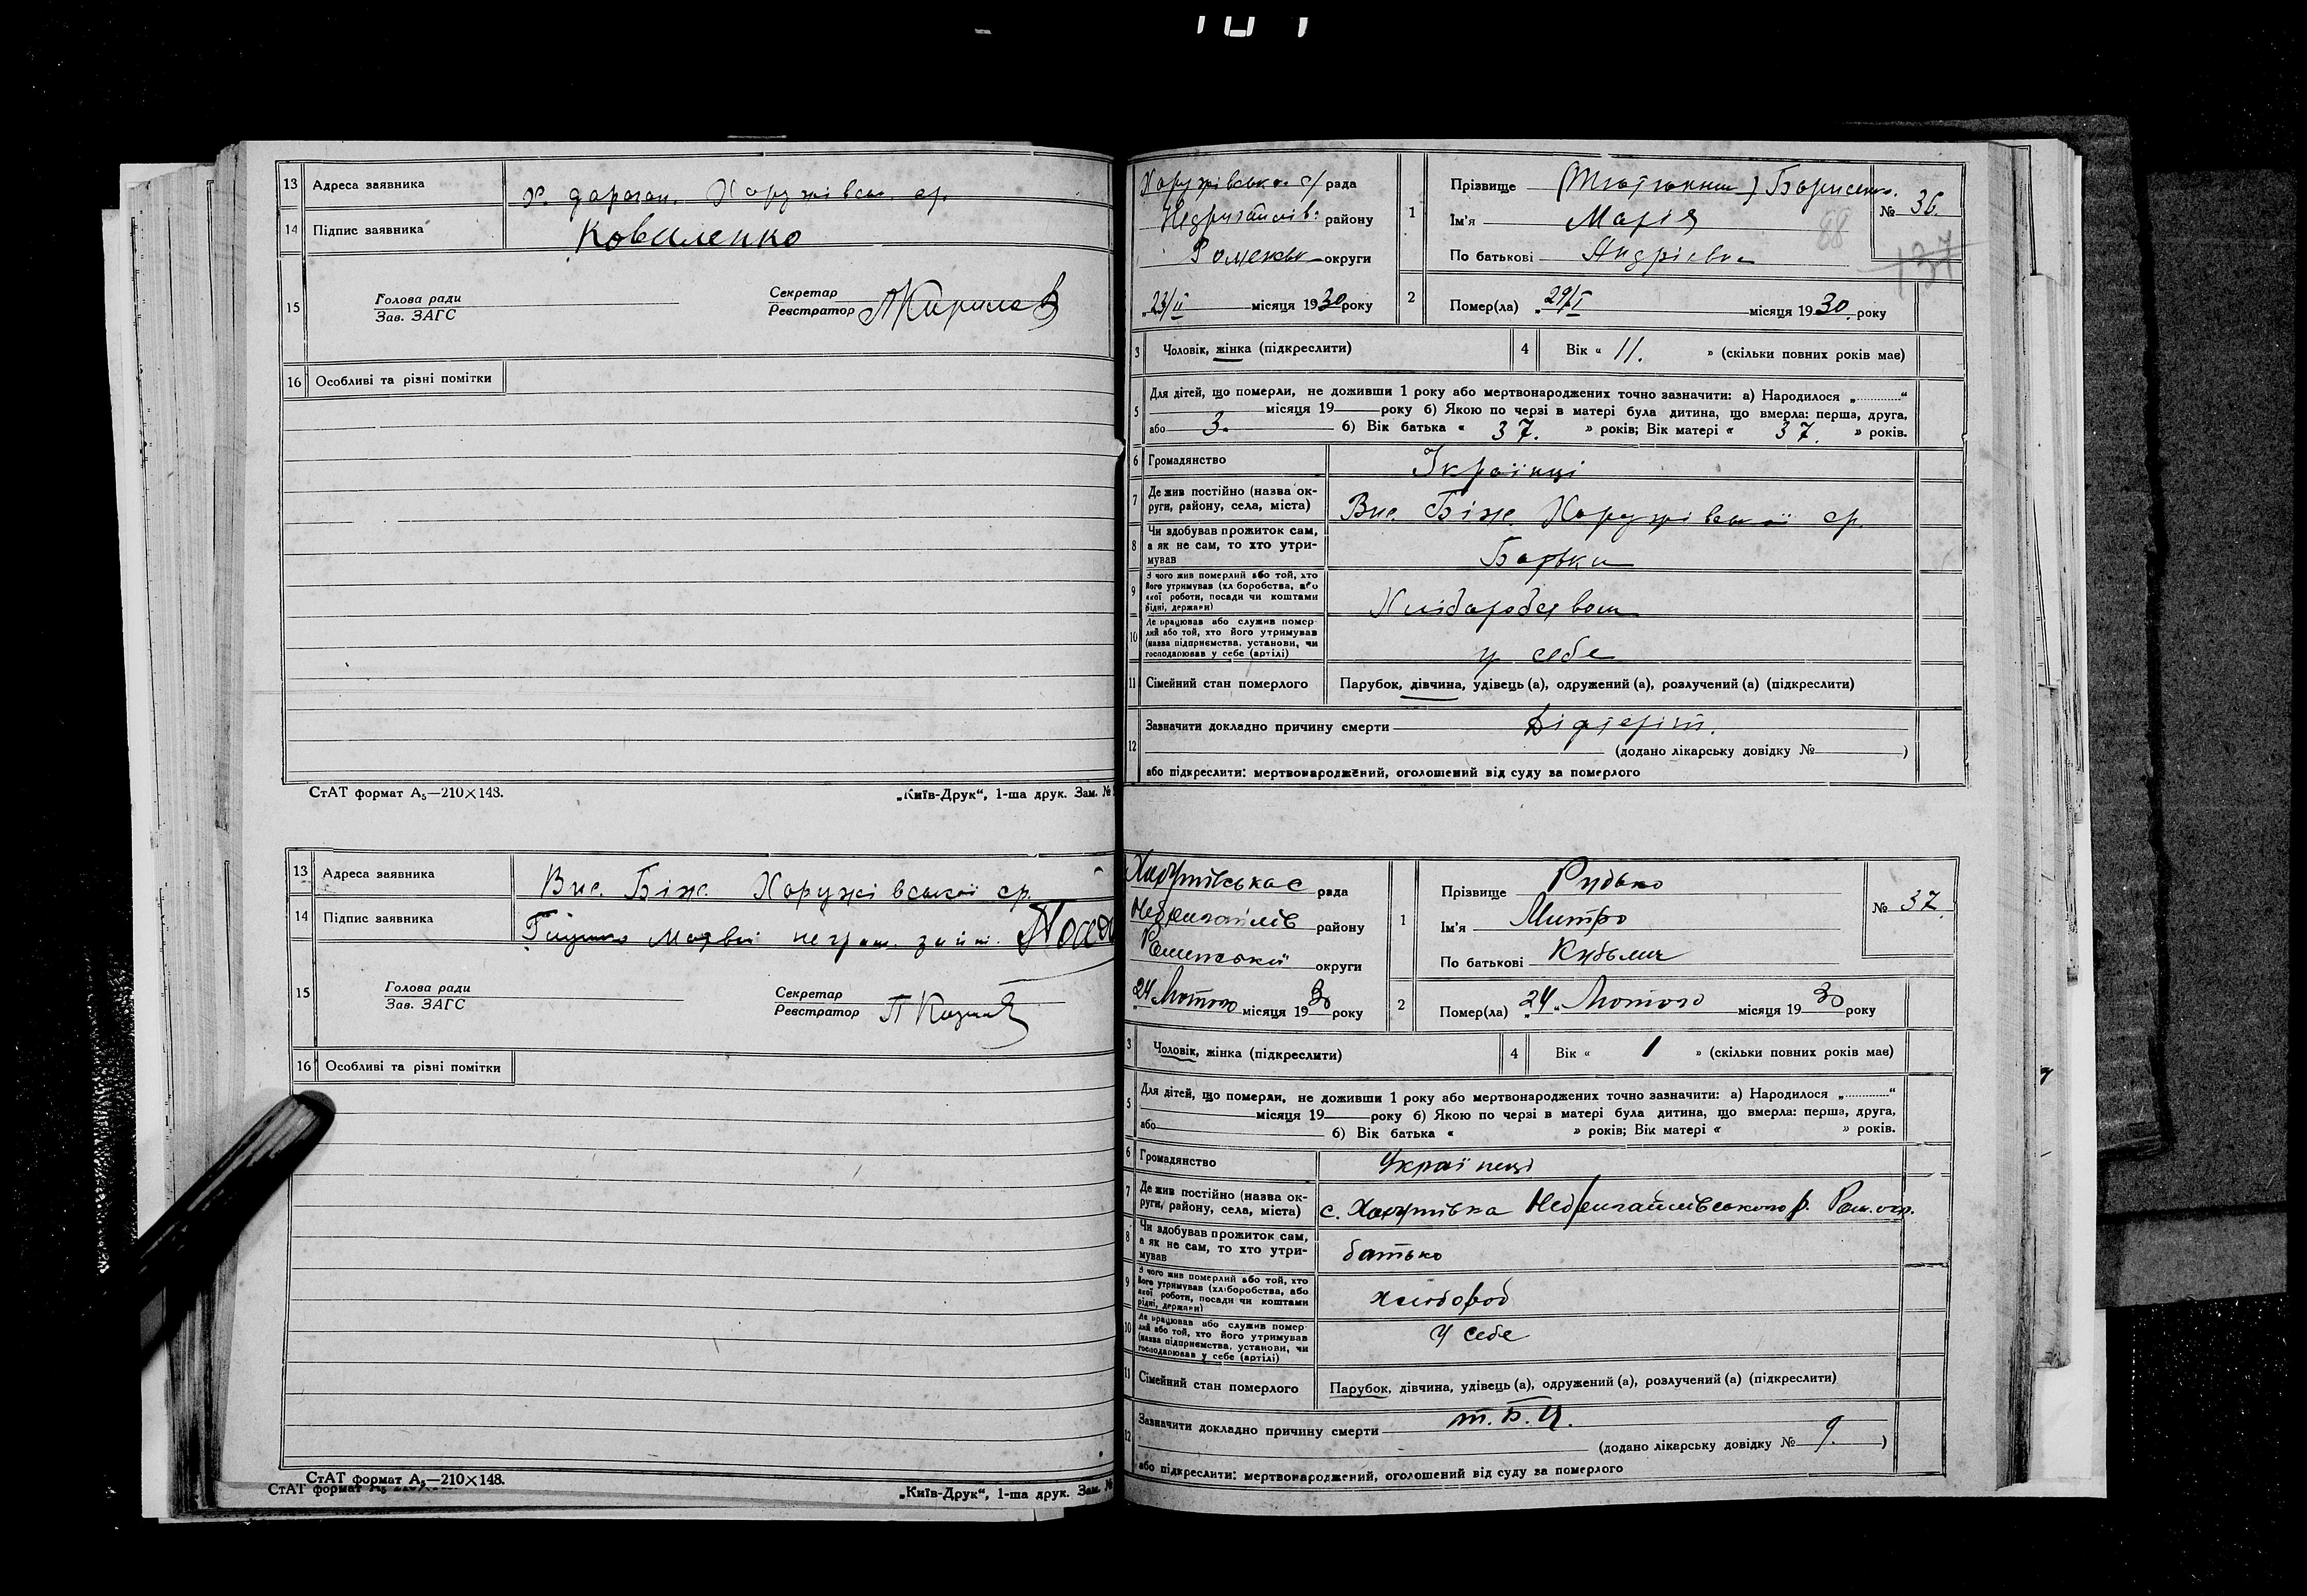 13 Адреса заявника х. дараган. Хоружівськ. ср.
14 Підпис заявника Коваленко
15 Голова ради Зав. ЗАГС Секретар Реєстратор
16 Особливі та різні помітки
СтАТ формат А₅—210×148. „Київ-Друк“, 1-ша друк. Зам. №
13 Адреса заявника Вис. Біж. Хоружівської ср.
14 Підпис заявника Матвій неграм.
15 Голова ради Зав. ЗАГС Секретар Реєстратор
16 Особливі та різні помітки
СтАТ формат А₅—210×148.
СтАТ формат А₅
„Київ-Друк“, 1-ша друк. Зам. №
Хоружівська с/ рада
Недригайлів: району
Роменськ округи
„23/II місяця 1930 року
1 Прізвище Борисенко
Ім'я Марія
По батькові Андріевна
№ 36.
88
137
2 Помер(ла) „29/I місяця 1930 року
3 Чоловік, жінка (підкреслити) 4 Вік « 11. » (скільки повних років має)
5 Для дітей, що померли, не доживши 1 року або мертвонароджених точно зазначити: а) Народилося „............“
місяця 19 року б) Якою по черзі в матері була дитина, що вмерла: перша, друга,
або 3. б) Вік батька « 37. » років; Вік матері « 37. » років.
6 Громадянство Українці
7 Де жив постійно (назва округи, району, села, міста) Вис. Біж. Хоружівської ср.
8 Чи здобував прожиток сам, а як не сам, то хто утримував Батьки
9 З чого жив померлий або той, хто його утримував (хліборобства, або якої роботи, посади чи коштами рідні, держави) Хліборобством
10 Де працював або служив померлий або той, хто його утримував (назва підприємства, установи, чи господарював у себе (артілі) у себе
11 Сімейний стан померлого Парубок, дівчина, удівець (а), одружений (а), розлучений (а) (підкреслити)
12 Зазначити докладно причину смерти Діфтеріт.
(додано лікарську довідку № )
або підкреслити: мертвонароджений, оголошений від суду за померлого
Хоружівська с рада
Недригайлів району
Роменської округи
„24 Лютого місяця 1930 року
1 Прізвище Рудько
Ім'я Митро
По батькові Кузьмич
№ 37.
2 Помер(ла) „24“ Лютого місяця 1930 року
3 Чоловік, жінка (підкреслити) 4 Вік « 1 » (скільки повних років має)
5 Для дітей, що померли, не доживши 1 року або мертвонароджених точно зазначити: а) Народилося „............“
місяця 19 року б) Якою по черзі в матері була дитина, що вмерла: перша, друга,
або б) Вік батька « » років; Вік матері « » років.
6 Громадянство Українці
7 Де жив постійно (назва округи, району, села, міста) с. Хоружівка Недригайлівського р. Ром. окр.
8 Чи здобував прожиток сам, а як не сам, то хто утримував батько
9 З чого жив померлий або той, хто його утримував (хліборобства, або якої роботи, посади чи коштами рідні, держави) хлібороб
10 Де працював або служив померлий або той, хто його утримував (назва підприємства, установи, чи господарював у себе (артілі) У себе
11 Сімейний стан померлого Парубок, дівчина, удівець (а), одружений (а), розлучений (а) (підкреслити)
12 Зазначити докладно причину смерти т. б. ц.
(додано лікарську довідку № 9. )
або підкреслити: мертвонароджений, оголошений від суду за померлого